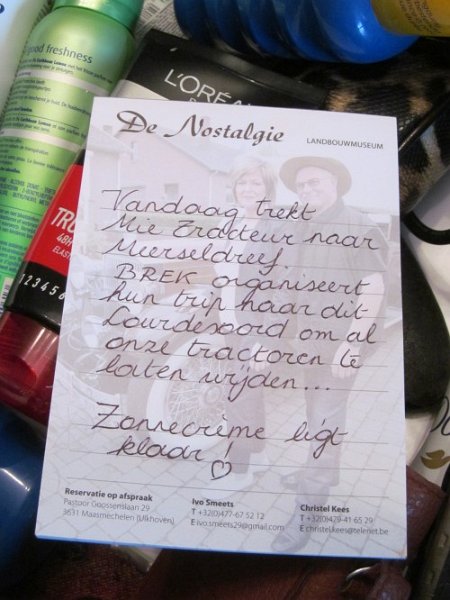 good freshness
L'ORÉAL
De Nostalgie
LANDBOUWMUSEUM
Vandaag trekt
Mie Tracteur naar
Meerseldreef.
BREK organiseert
hun trip naar dit
Lourdesoord om al
onze tractoren te
laten wijden...
Zonnecrème ligt
klaar!♡
48H
1 2 3 4 5 6
Reservatie op afspraak
Pastoor Goossenslaan 29
3631 Maasmechelen (Uikhoven)
Ivo Smeets
T +32(0)477-67 52 12
E ivo.smeets29@gmail.com
Christel Kees
T +32(0)479-41 65 29
E christel.kees@telenet.be